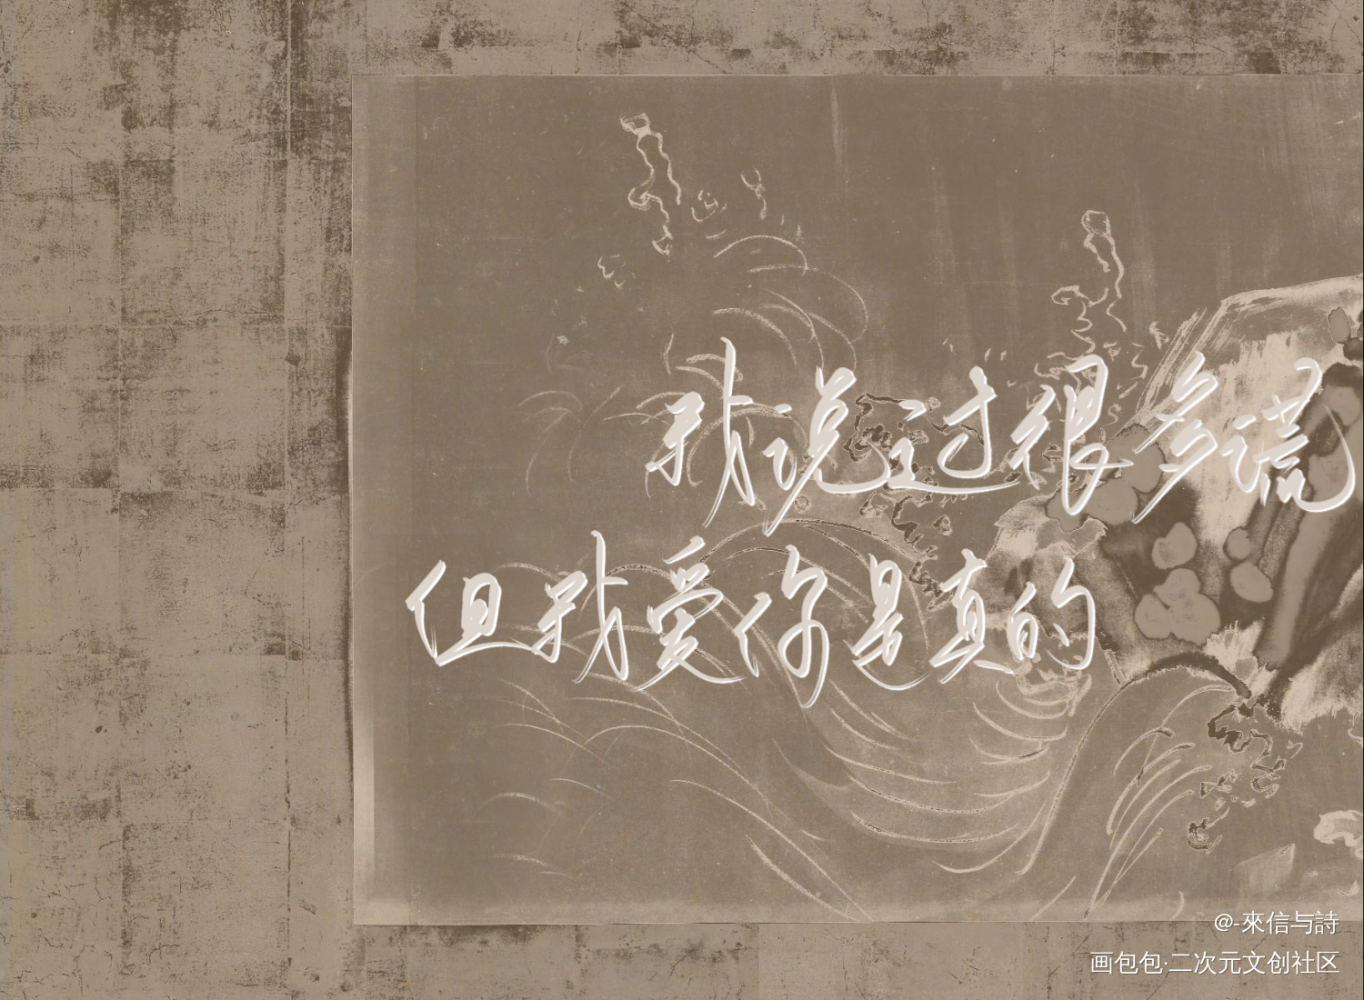 我说过很多谎
但我爱你是真的
@-來信与詩
画包包·二次元文创社区